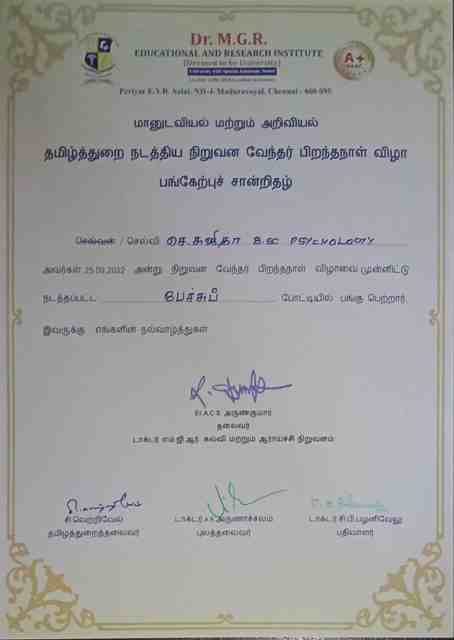 Dr. M.G.R.
EDUCATIONAL AND RESEARCH INSTITUTE
(Deemed to be University)
University with Special Autonomy Status
Periyar E.V.R. Salai, NH-4, Maduravoyal, Chennai - 600 095.
A+
மானுடவியல் மற்றும் அறிவியல்
தமிழ்த்துறை நடத்திய நிறுவன வேந்தர் பிறந்தநாள் விழா
பங்கேற்புச் சான்றிதழ்
செல்வன் / செல்வி செ.சுஜிதா B.SC PSYCHOLOGY
அவர்கள் 25.09.2022 அன்று நிறுவன வேந்தர் பிறந்தநாள் விழாவை முன்னிட்டு
நடத்தப்பட்ட பேச்சுப் போட்டியில் பங்கு பெற்றார்.
இவருக்கு எங்களின் நல்வாழ்த்துகள்
A.C.S. அருண்குமார்
தலைவர்
டாக்டர் எம்.ஜி.ஆர். கல்வி மற்றும் ஆராய்ச்சி நிறுவனம்
சி.வெற்றிவேல் டாக்டர் அருணாச்சலம் டாக்டர் சி.பி.பழனிவேலு
தமிழ்த்துறைத்தலைவர் புலத்தலைவர் பதிவாளர்